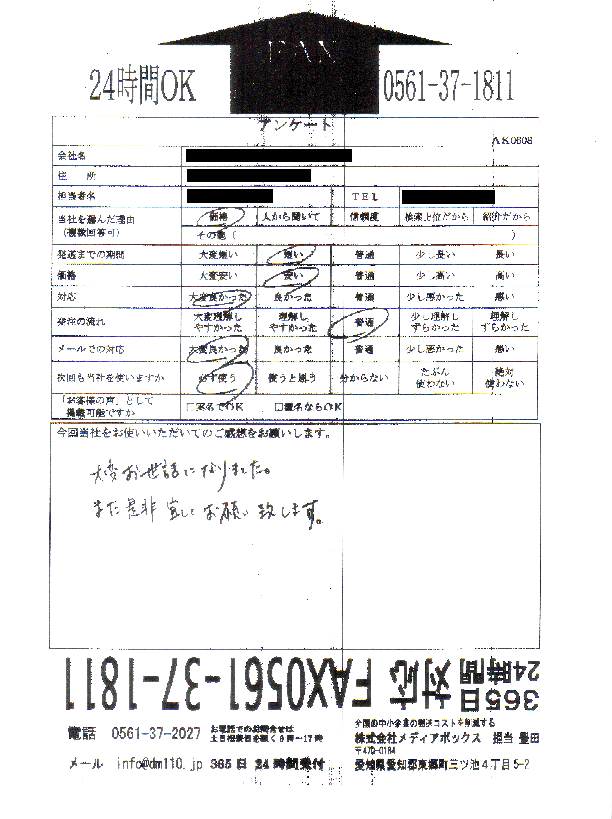 FAX
24時間OK
0561-37-1811
アンケート
AK0608
会社名
住 所
担当者名 TEL
当社を選んだ理由 価格 人から聞いて 信頼度 検索上位だから 紹介だから
(複数回答可) その他( )
発送までの期間 大変短い 短い 普通 少し長い 長い
価格 大変安い 安い 普通 少し高い 高い
対応 大変良かった 良かった 普通 少し悪かった 悪い
発注の流れ 大変理解しやすかった 理解しやすかった 普通 少し理解しずらかった 理解しずらかった
メールでの対応 大変良かった 良かった 普通 少し悪かった 悪い
次回も当社を使いますか 必ず使う 使うと思う 分からない たぶん使わない 絶対使わない
「お客様の声」として掲載可能ですか □実名でOK □匿名ならOK
今回当社をお使いいただいてのご感想をお願いします。
大変お世話になりました。
また是非宜しくお願い致します。
365日24時間対応 FAX0561-37-1811
電話 0561-37-2027 お電話でのお問合せは
土日祝祭日を除く9時~17時
メール info@dm110.jp 365日24時間受付
全国の中小企業の郵送コストを削減する
株式会社メディアボックス 担当 豊田
〒470-0164
愛知県愛知郡東郷町三ツ池4丁目5-2